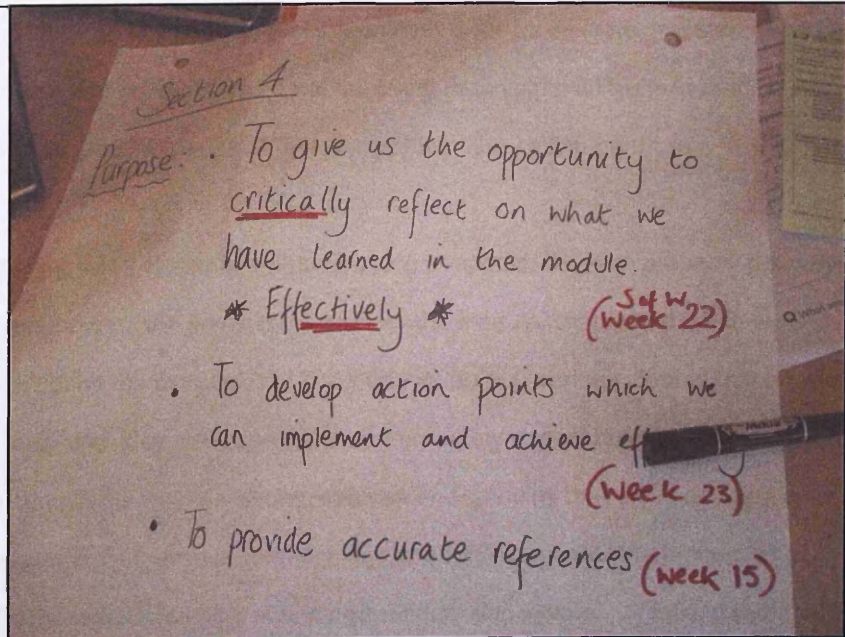 Section 4
Purpose: • To give us the opportunity to
critically reflect on what we
have learned in the module.
* Effectively *
(S of W
Week 22)
• To develop action points which we
can implement and achieve eff
(Week 23)
• To provide accurate references (Week 15)